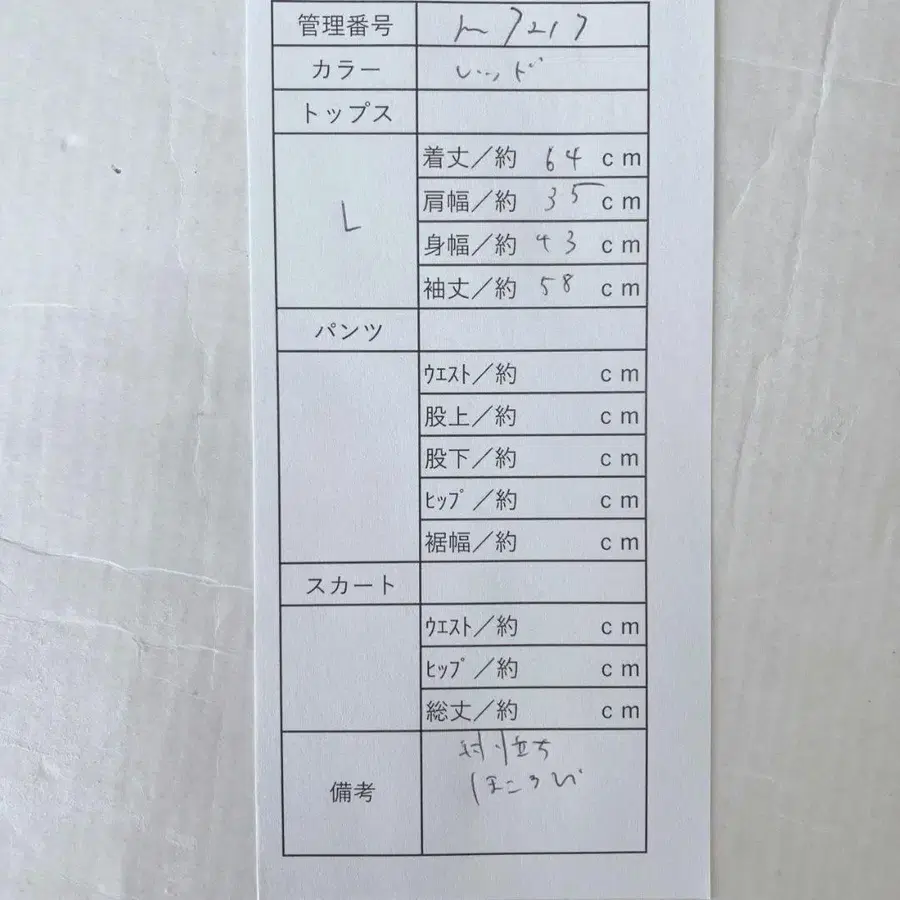 管理番号 m7217
カラー レッド
トップス
L
着丈／約 64 cm
肩幅／約 35 cm
身幅／約 43 cm
袖丈／約 58 cm
パンツ
ｳｴｽﾄ／約 cm
股上／約 cm
股下／約 cm
ﾋｯﾌﾟ／約 cm
裾幅／約 cm
スカート
ｳｴｽﾄ／約 cm
ﾋｯﾌﾟ／約 cm
総丈／約 cm
備考
毛羽立ち
ほころび